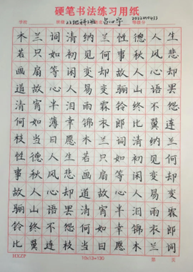 硬笔书法练习用纸
木兰词清纳兰性德人生
若只如初见何事秋风悲
画扇等闲变却故人心却
道故人心易变骊山语罢
清宵半泪雨霖铃终不怨
何如薄幸锦衣郎比翼连
枝当日愿木兰词清纳兰
性德人生若只如初见何
事秋风悲画扇等闲变却
故人心却道故人心易变
骊山语罢清宵半泪雨霖
铃终不怨何如薄幸锦衣
郎比翼连枝当日愿木兰词